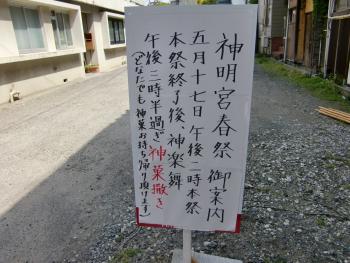 神明宮春祭 御案内
五月十七日 午後二時本祭
本祭終了後、神楽舞
午後三時半過ぎ 神菓撒き
(どなたでも神菓お持ち帰り頂けます)